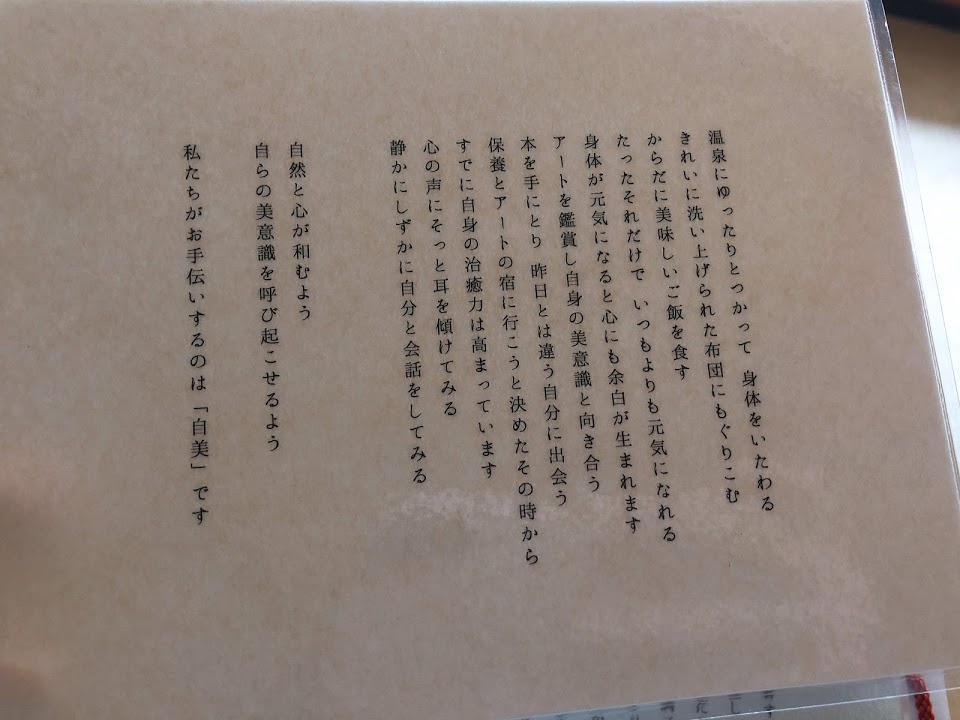 温泉にゆったりとつかって 身体をいたわる
きれいに洗い上げられた布団にもぐりこむ
からだに美味しいご飯を食す
たったそれだけで いつもよりも元気になれる
身体が元気になると心にも余白が生まれます
アートを鑑賞し自身の美意識と向き合う
本を手にとり 昨日とは違う自分に出会う
保養とアートの宿に行こうと決めたその時から
すでに自身の治癒力は高まっています
心の声にそっと耳を傾けてみる
静かにしずかに自分と会話をしてみる
自然と心が和むよう
自らの美意識を呼び起こせるよう
私たちがお手伝いするのは「自美」です